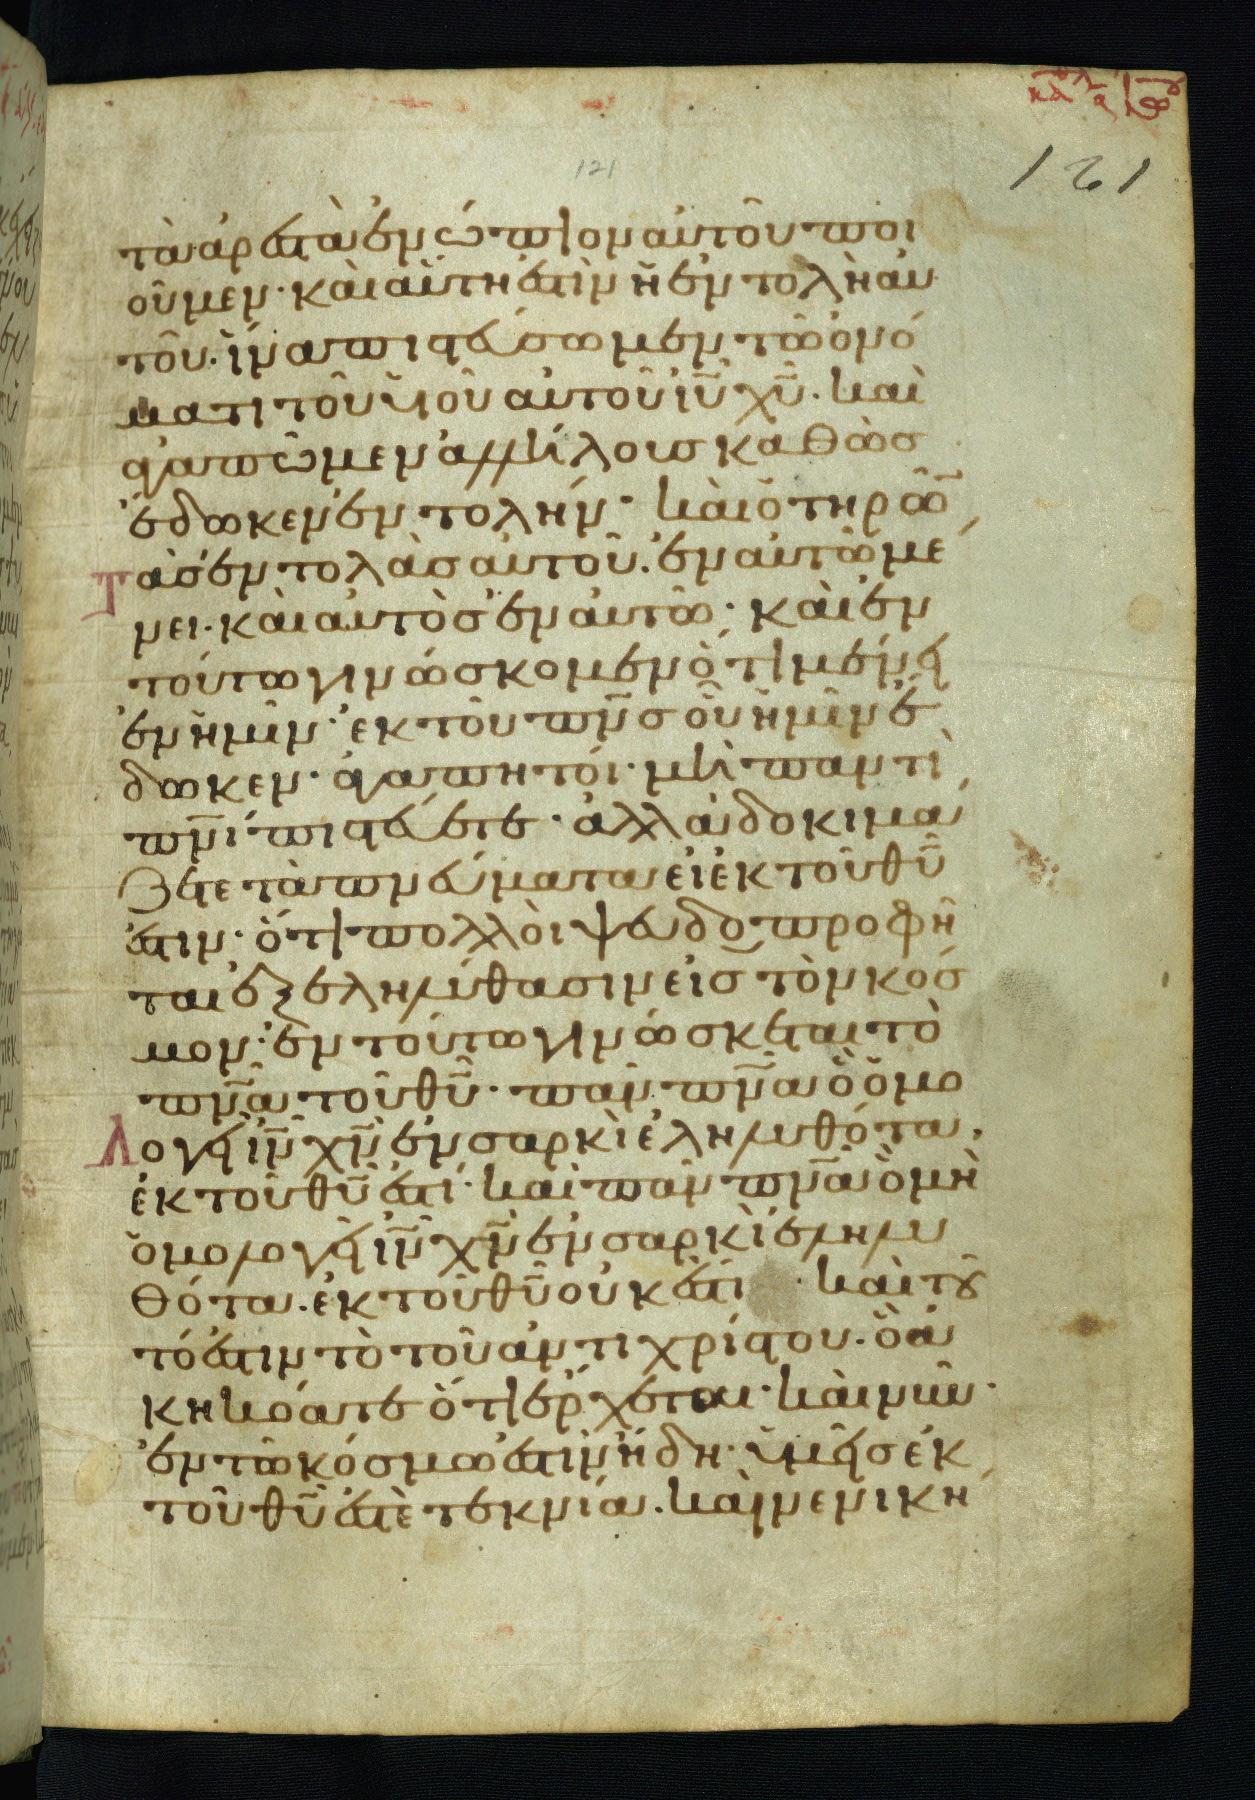 121
121
τὰ ἀρεστὰ ἐνώπιον αὐτοῦ ποι
οῦμεν· καὶ αὕτη ἐστὶν ἡ ἐντολὴ αὐ
τοῦ· ἵνα πιστεύσωμεν τῶ ὀνό
ματι τοῦ υἱοῦ αὐτοῦ ιῦ χῦ· καὶ
ἀγαπῶμεν ἀλλήλους καθὼσ
ἔδωκεν ἐντολήν· καὶ ὁ τηρῶν
τὰσ ἐντολὰσ αὐτοῦ· ἐν αὐτῶ με
νει· καὶ αὐτὸσ ἐν αὐτῶ· καὶ ἐν
τούτω γινώσκομεν ὅτι μένει
ἐν ἡμῖν· ἐκ τοῦ πνσ οὗ ἡμῖν ἔ
δωκεν· ἀγαπητοί· μὴ παντὶ
πνι πιστεύετε· ἀλλὰ δοκιμά
ζετε τὰ πνεύματα εἰ ἐκ τοῦ θῦ
ἐστιν· ὅτι πολλοὶ ψευδοπροφῆ
ται ἐξεληλύθασιν εἰσ τὸν κόσ
μον· ἐν τούτω γινώσκεται τὸ
πνα τοῦ θῦ· πᾶν πνα ὃ ὁμο
λογεῖ ιν χν ἐν σαρκὶ ἐληλυθότα,
ἐκ τοῦ θῦ ἐστί· καὶ πᾶν πνα ὃ μὴ
ὁμολογεῖ ιν χν ἐν σαρκὶ ἐληλυ
θότα· ἐκ τοῦ θῦ οὐκ ἐστὶ · καὶ τοῦ
τό ἐστιν τὸ τοῦ ἀντιχρίστου· ὃ ἀ
κηκόατε ὅτι ἔρχεται· καὶ νῦν·
ἐν τῶ κόσμω ἐστὶν ἤδη· ὑμεῖσ ἐκ
τοῦ θῦ ἐστὲ τεκνία· καὶ νενικη